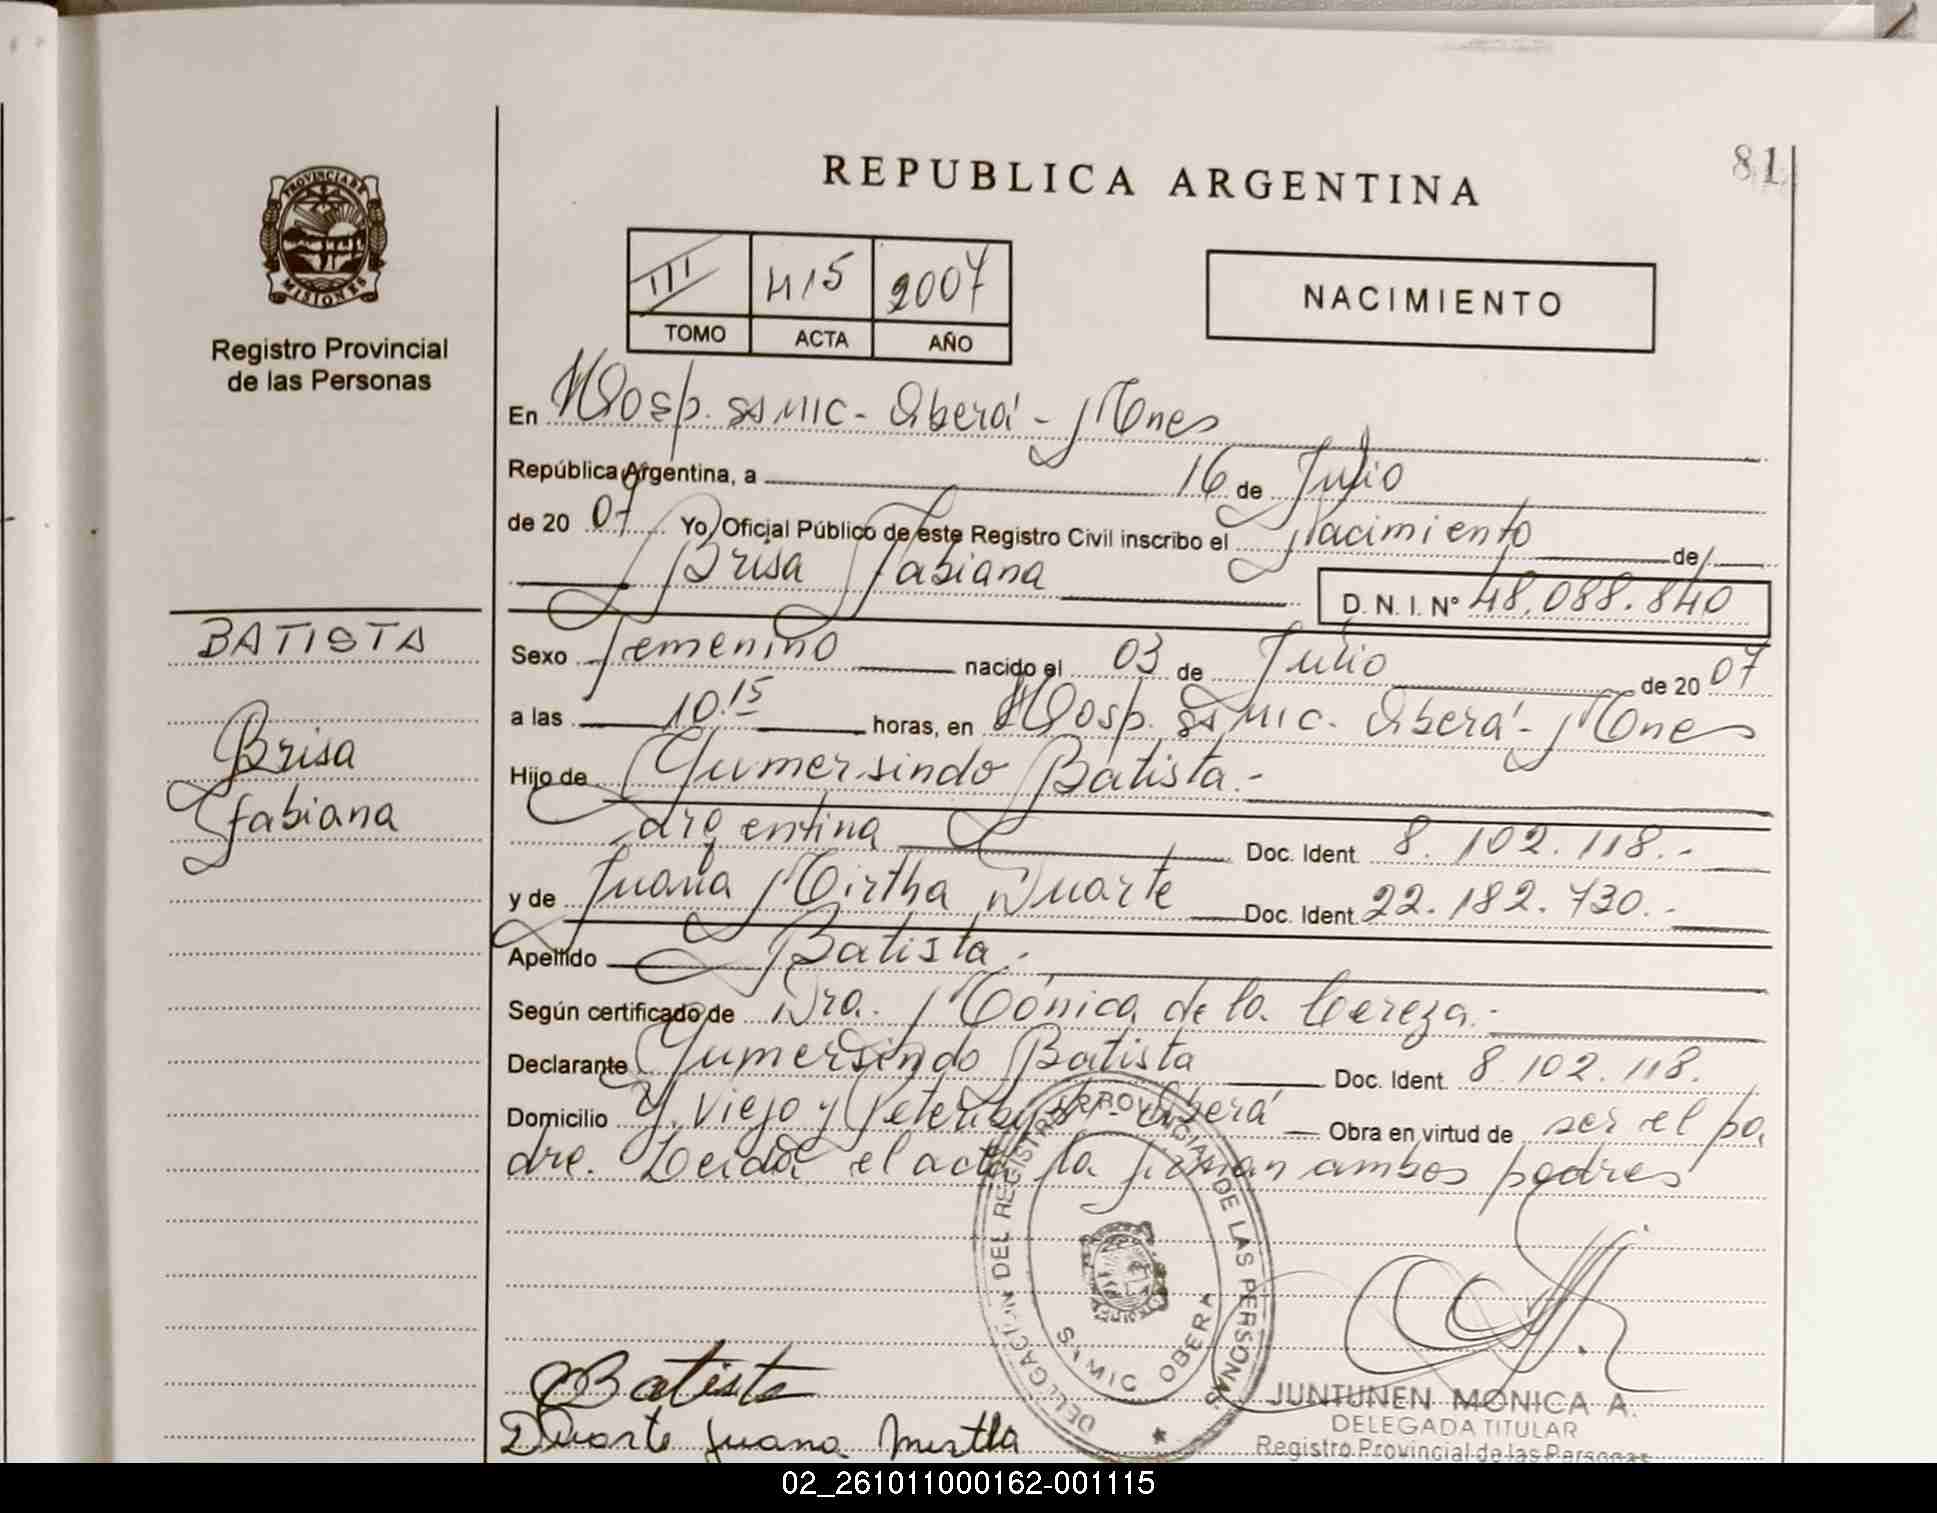 81
REPUBLICA ARGENTINA
PROVINCIA DE
MISIONES
Registro Provincial
de las Personas
III 415 2007
TOMO ACTA AÑO
NACIMIENTO
En Hosp. SAMIC - Oberá - Mnes
República Argentina, a 16 de Julio
de 20 07 Yo, Oficial Público de este Registro Civil inscribo el Nacimiento de
Brisa Fabiana
D. N. I. N° 48.088.840
BATISTA
Brisa
Fabiana
Sexo Femenino nacido el 03 de Julio de 20 07
a las 10.15 horas, en Hosp. SAMIC. Oberá - Mnes
Hijo de Gumersindo Batista.-
Argentina Doc. Ident. 8.102.118.-
y de Juana Mirtha Duarte Doc. Ident. 22.182.730.-
Apellido Batista.
Según certificado de Dra. Mónica de la Cereza.-
Declarante Gumersindo Batista Doc. Ident. 8.102.118.
Domicilio Y. Viejo y - Oberá Obra en virtud de ser el pa
dre. Leida el acta la firman ambos padres
DELEGACION DEL REGISTRO PROVINCIAL DE LAS PERSONAS
SAMIC OBERA
Batista
Duarte Juana Mirtha
JUNTUNEN MONICA A.
DELEGADA TITULAR
Registro Provincial de las Personas
02_261011000162-001115